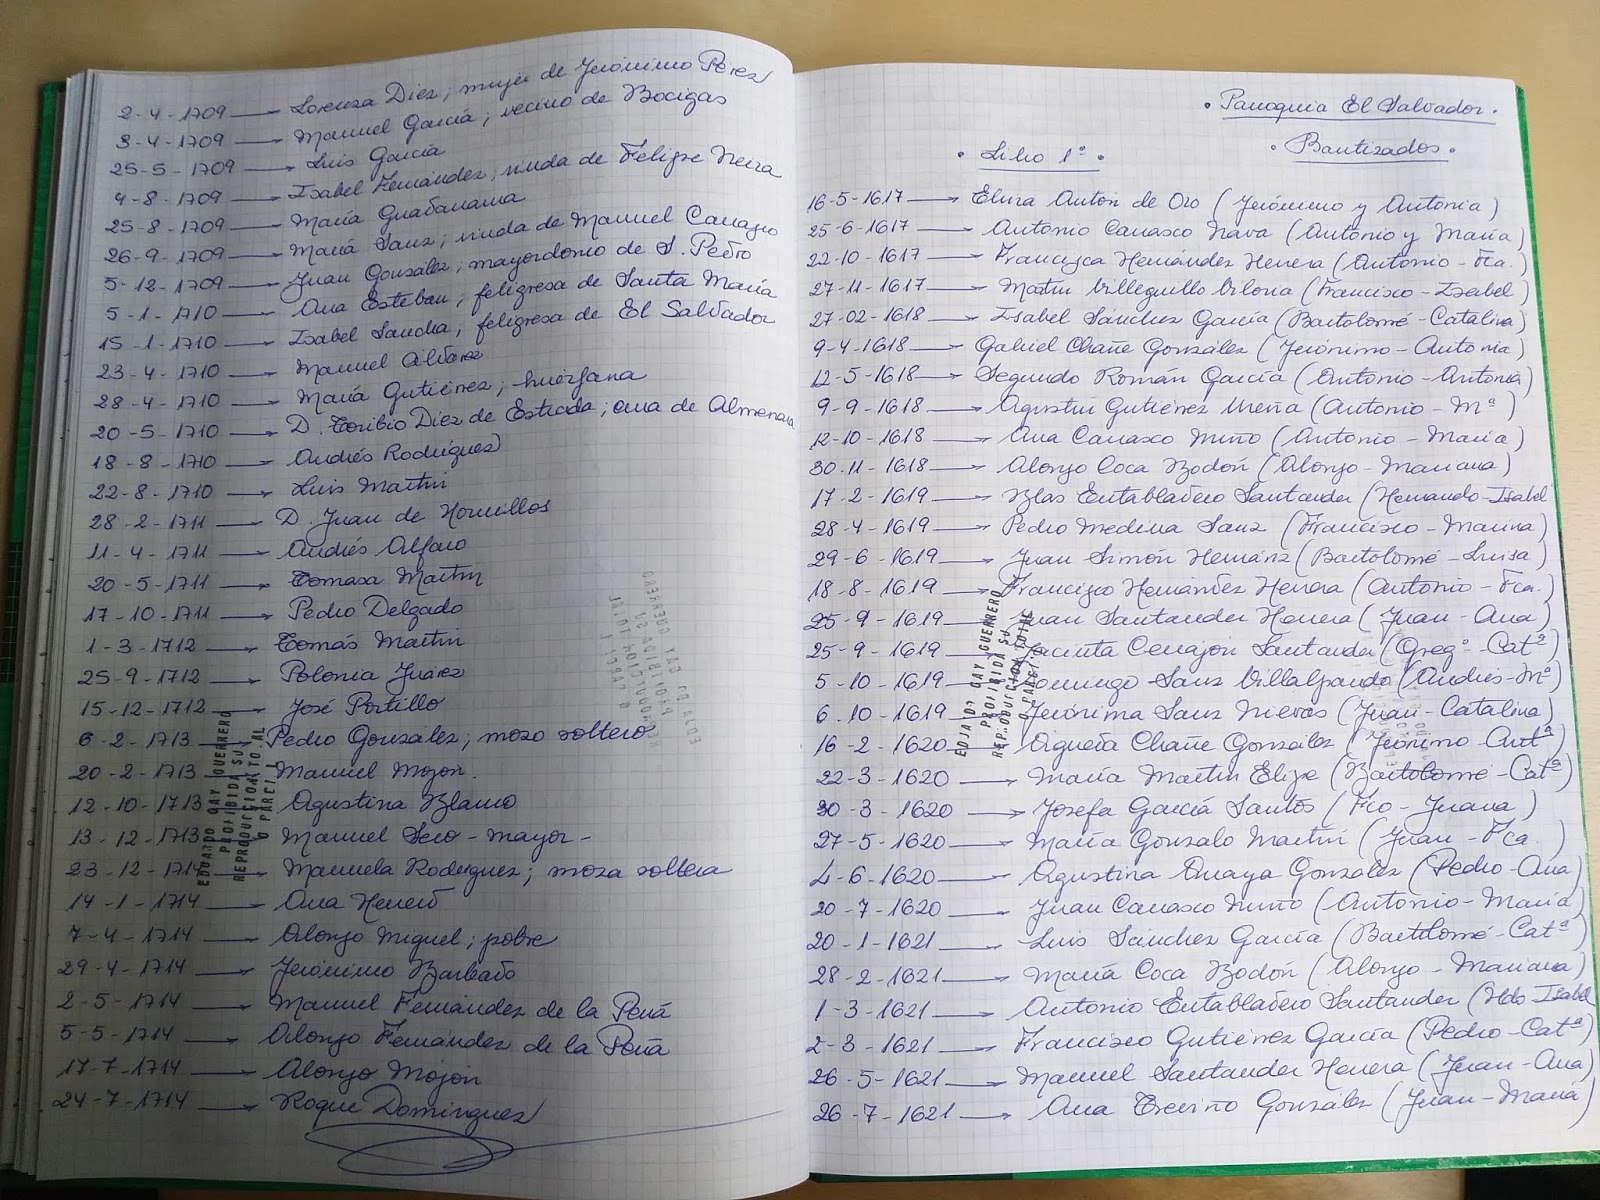 2-4-1709 → Lorenza Diez; mujer de Jerónimo Pérez
3-4-1709 → Manuel García; vecino de Bocigas
25-5-1709 → Luis García
4-8-1709 → Isabel Fernández; viuda de Felipe Neira
25-8-1709 → María Guadarrama
26-9-1709 → María Sanz; viuda de Manuel Carrasco
5-12-1709 → Juan González; mayordomo de S. Pedro
5-1-1710 → Ana Esteban; feligresa de Santa María
15-1-1710 → Isabel Sancha; feligresa de El Salvador
23-4-1710 → Manuel Alvarez
28-4-1710 → María Gutiérrez; huérfana
20-5-1710 → D. Toribio Diez de Estrada; cura de Almenara
18-8-1710 → Andrés Rodríguez
22-8-1710 → Luis Martín
28-2-1711 → D. Juan de Hornillos
11-4-1711 → Andrés Alfaro
20-5-1711 → Tomasa Martín
17-10-1711 → Pedro Delgado
1-3-1712 → Tomás Martín
25-9-1712 → Polonia Juárez
15-12-1712 → José Portillo
6-2-1713 → Pedro González; mozo soltero
20-2-1713 → Manuel Mojon.
12-10-1713 → Agustina Blanco
13-12-1713 → Manuel Seco - mayor -
23-12-1714 → Manuela Rodríguez; moza soltera
14-1-1714 → Ana Herrero
7-4-1714 → Alonso Miguel; pobre
29-4-1714 → Jerónimo Barbado
2-5-1714 → Manuel Fernández de la Peña
5-5-1714 → Alonso Fernández de la Peña
17-7-1714 → Alonso Mojón
24-7-1714 → Roque Domínguez
EDUARDO GAY GUERRERO
PROHIBIDA SU
REPRODUCCION TOTAL
O PARCIAL
• Parroquia El Salvador •
• Bautizados •
• Libro 1º •
16-5-1617 → Elvira Antón de Oro (Jerónimo y Antonia)
25-6-1617 → Antonio Carrasco Nava (Antonio y María)
22-10-1617 → Francisca Hernández Herrera (Antonio - Fca.)
27-11-1617 → Martín Villeguillo Viloria (Francisco - Isabel)
27-02-1618 → Isabel Sánchez García (Bartolomé - Catalina)
9-4-1618 → Gabriel Chañe González (Jerónimo - Antonia)
12-5-1618 → Segundo Román García (Antonio - Antonia)
9-9-1618 → Agustín Gutiérrez Ureña (Antonio - Mª)
12-10-1618 → Ana Carrasco Niño (Antonio - María)
30-11-1618 → Alonso Coca Bodón (Alonso - Mariana)
17-2-1619 → Blas Entabladero Santander (Hernando - Isabel
28-4-1619 → Pedro Medina Sanz (Francisco - Marina)
29-6-1619 → Juan Simón Hernánz (Bartolomé - Luisa)
18-8-1619 → Francisco Hernández Herrera (Antonio - Fca.)
25-9-1619 → Juan Santander Herrera (Juan - Ana)
25-9-1619 → Jacinta Cerrajón Santander (Gregº - Catª)
5-10-1619 → Domingo Sanz Villalpando (Andrés - Mª)
6-10-1619 → Jerónima Sanz Nievas (Juan - Catalina)
16-2-1620 → Agueda Chañe González (Jerónimo - Antª)
22-3-1620 → María Martín Elize (Bartolomé - Catª)
30-3-1620 → Josefa García Santos (Fco - Juana)
27-5-1620 → María Gonzalo Martín (Juan - Fca.)
4-6-1620 → Agustina Anaya González (Pedro - Ana)
20-7-1620 → Juan Carrasco Niño (Antonio - María)
20-1-1621 → Luis Sánchez García (Bartolomé - Catª)
28-2-1621 → María Coca Bodón (Alonso - Mariana)
1-3-1621 → Antonio Entabladero Santander (Hdo - Isabel
2-3-1621 → Francisco Gutiérrez García (Pedro - Catª)
26-5-1621 → Manuel Santander Herrera (Juan - Ana)
26-7-1621 → Ana Treviño González (Juan - María)
EDUARDO GAY GUERRERO
PROHIBIDA SU
REPRODUCCION TOTAL
O PARCIAL